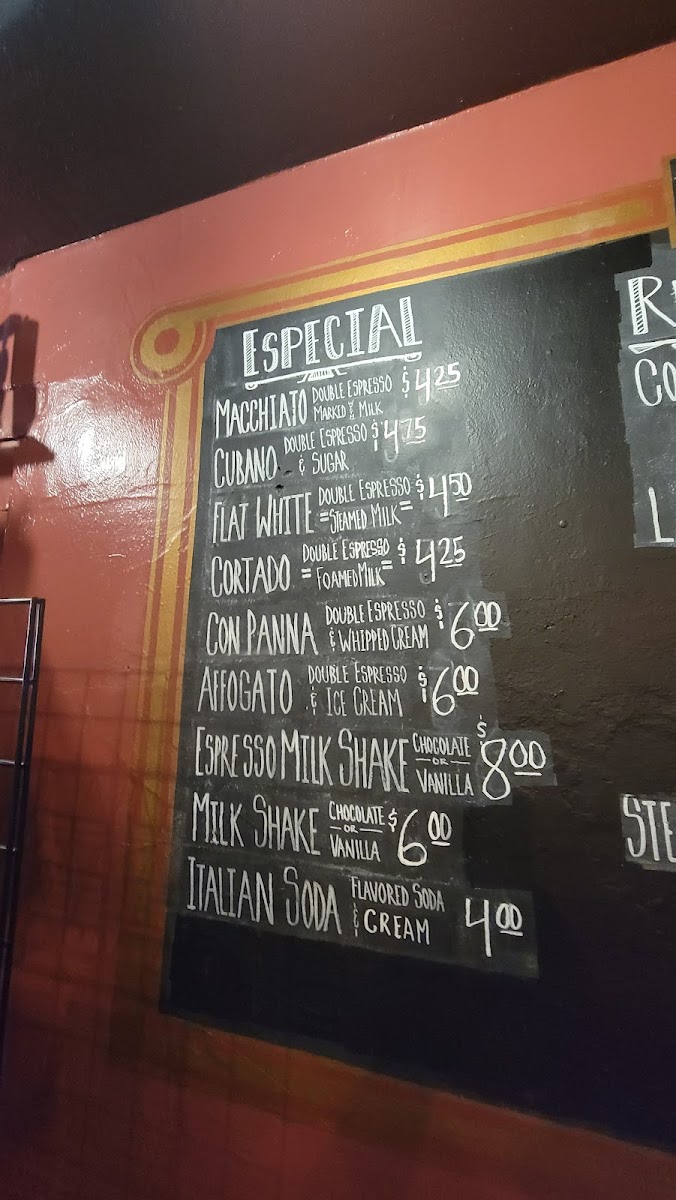 ESPECIAL
MACCHIATO DOUBLE ESPRESSO MARKED W MILK $4.25
CUBANO DOUBLE ESPRESSO & SUGAR $4.75
FLAT WHITE DOUBLE ESPRESSO =STEAMED MILK= $4.50
CORTADO DOUBLE ESPRESSO =FOAMED MILK= $4.25
CON PANNA DOUBLE ESPRESSO & WHIPPED CREAM $6.00
AFFOGATO DOUBLE ESPRESSO & ICE CREAM $6.00
ESPRESSO MILK SHAKE CHOCOLATE -OR- VANILLA $8.00
MILK SHAKE CHOCOLATE -OR- VANILLA $6.00
ITALIAN SODA FLAVORED SODA & CREAM 4.00
R
CO
L
STE